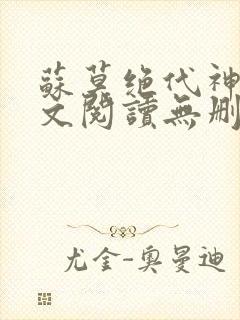 蘇莫絕代神
文閱讀無刪
尤金-奧曼迪